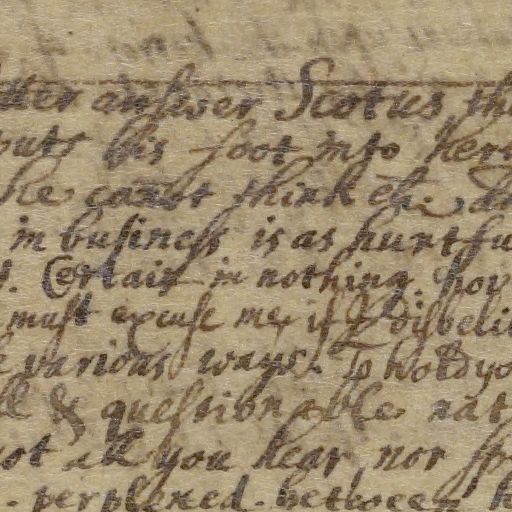 tter answer Scotus, th
puts his foot into her
he canot think
in business is as hurtfu
Certain in nothing. you
must excuse me if I disbeli
various ways. To hold yo
& questionable nat
not all you hear, nor sp
perplexed between h